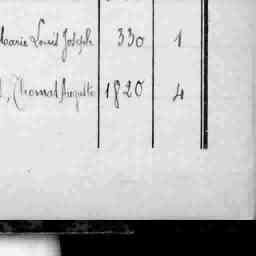 Marie Louis Joseph 330 1
Thomas Auguste 1820 4